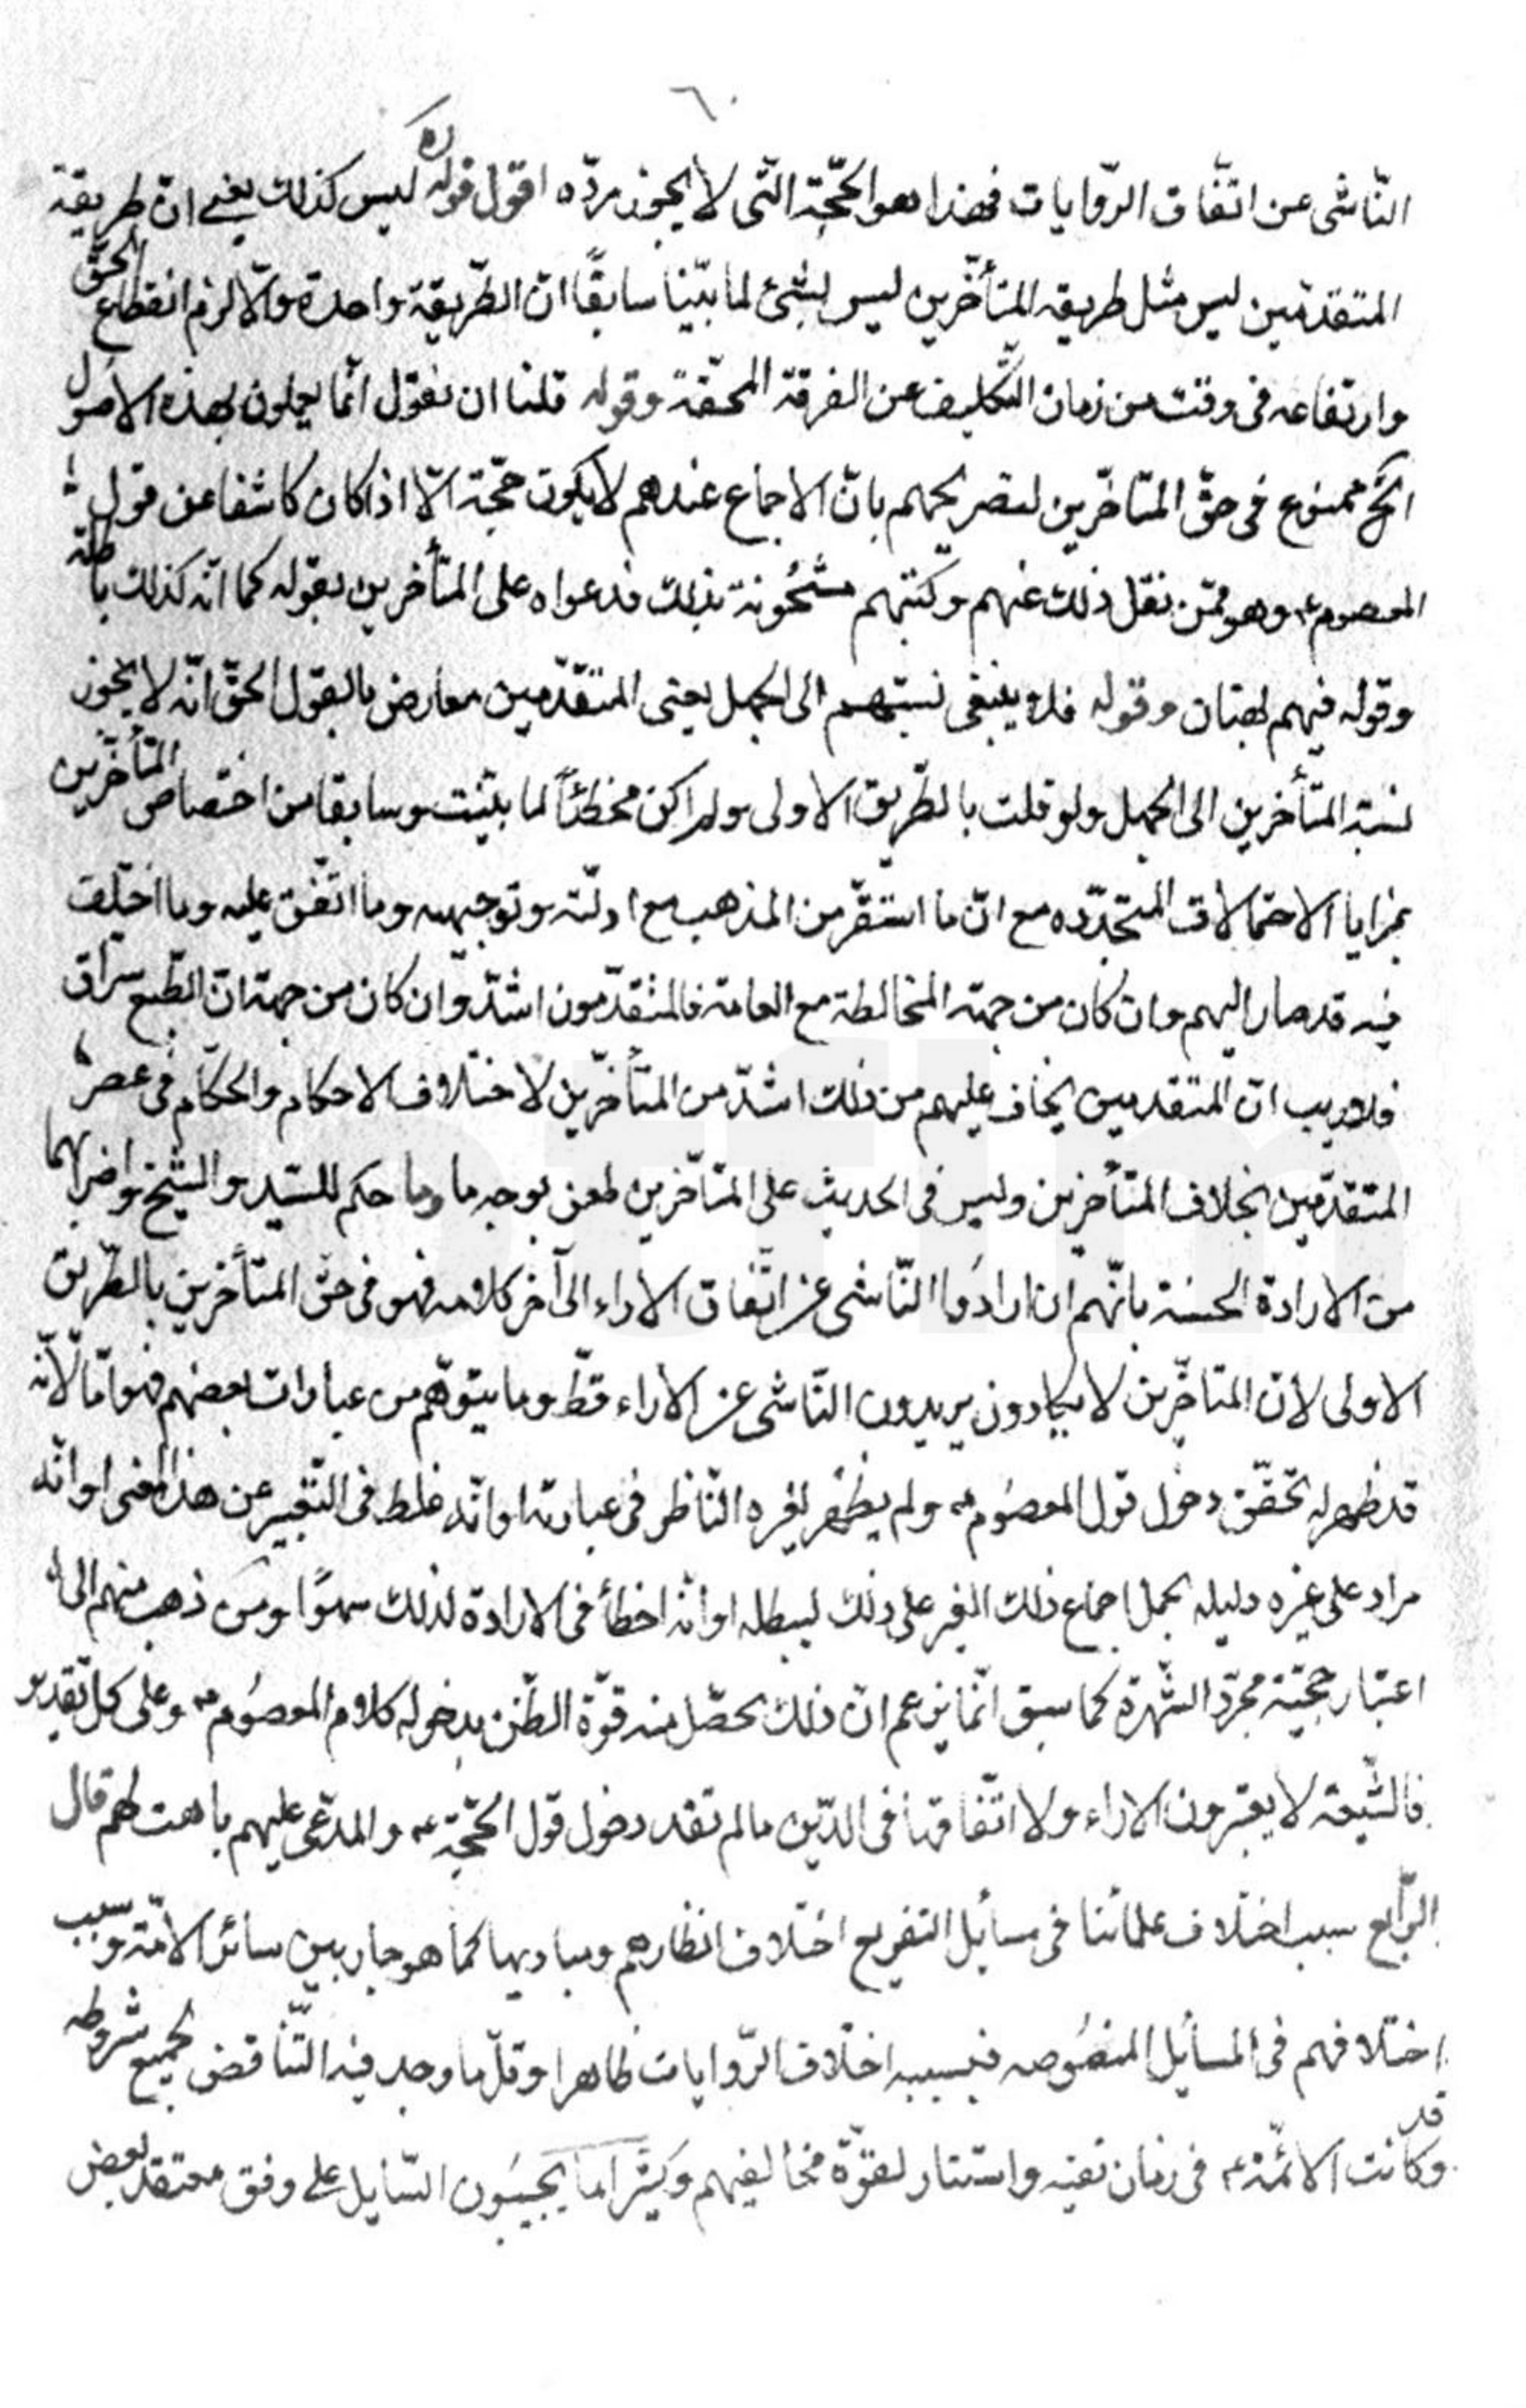 ٦٠
النّاشى عن اتّفاق الرّوايات فهذا هو الحجّة التّى لا يجوز ردّه اقول قوله ره ليس كذلك يعنى انّ طريقة
المتقدّمين ليس مثل طريقه المتأخّرين ليس بشئ لما بيّنا سابقًا انّ الطّريقة واحدة والّا لزم انقطاع الحقّ
وارتفاعه فى وقت من زمان التّكليف عن الفرقة المحقّة وقوله قلنا ان نقول انّما يعملون بهذه الاصول
الخ ممنوع فى حقّ المتاخّرين لتصريحهم بانّ الاجماع عندهم لا يكون حجّة الّا اذا كان كاشفا عن قول
المعصوم ع وهو ممّن نقل ذلك عنهم وكتبهم مشحُونة بذلك فدعواه على المتأخرين بقوله كما انّه كذلك باطلة
وقوله فيهم بهتان وقوله فلا ينبغى نسبتهم الى الجهل يعنى المتقدّمين معارض بالقول الحقّ انّه لا يجوز
نسبة المتأخرين الى الجهل ولو قلت بالطّريق الاولى ولم اكن مخطئاً لما بيّنت سابقا من اختصاص المتأخّرين
بمزايا الاحتمالات المتجدّده مع انّ ما استقرّ من المذهب مع ادلّته وتوجيهه وما اتّفق عليه وما اختلف
فيه قد صار اليهم وان كان من جهة المخالطة مع العامة فالمتقدّمون اشدّ وان كان من جهة انّ الطّبع سرّاق
فلا ريب انّ المتقدمين يخاف عليهم من ذلك اشدّ من المتأخّرين لاختلاف الاحكام والحكّام فى عصر
المتقدّمين بخلاف المتأخرين وليس فى الحديث على المتاخّرين طعن بوجه ما وما حكم للسّيد والشّيخ واضرابهما
من الارادة الحسنة بانّهم ان ارادُوا النّاشى عن اتّفاق الاراء الى آخر كلامه فهو فى حقّ المتأخرين بالطّريق
الاولى لانّ المتاخّرين لا يكادون يريدون النّاشى عن الاراء قطّ وما يتوهّم من عبارات بعضهم فهو امّا لانّه
قد ظهر له تحقّق دخول قول المعصُوم ع ولم يظهر لغيره النّاظر فى عبارته او انّه غلط فى التّعبير عن هذا المعنى او انّه
مراد على غيره دليله بحمل اجماع ذلك الغير على ذلك ليبطله او انّه اخطأ فى الارادة لذلك سهوًا ومن ذهب منهم الى
اعتبار حجّيّة مجرّد الشّهرة كما سبق انّما يزعم انّ ذلك يحصّل منه قوّة الظّن بدخوله كلام المعصُوم ع وعلى كل تقدير
فالشّيعة لا يعتبرون الاراء ولا اتّفاقها فى الدّين ما لم تفد دخول قول الحجّة ع والمدّعى عليهم باهت لهم قال
الرّابع سبب اختلاف علمائنا فى مسايل التفريع اختلاف انظارهم ومباديها كما هو جار بين سائر الامّة وسبب
اختلافهم فى المسايل المنصُوصه فبسببه اختلاف الرّوايات ظاهرا وقلّ ما وجد فيه التّناقض بجميع شروطه
وقد كانت الائمّة ع فى زمان تقيه واستتار لقوّة مخالفيهم وكثيرا ما يجيبُون السّايل على وفق معتقد بعض